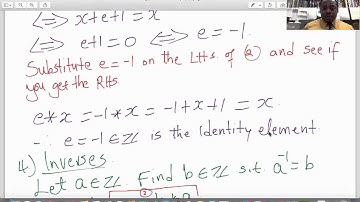 ⟺ x+e+1=x
⟺ e+1=0 ⟺ e=-1.
Substitute e=-1 on the LHS. of (a) and see if
you get the RHS.
e*x=-1*x=-1+x+1=x.
∴ e=-1∈ℤ is the Identity element
4) Inverses.
Let a∈ℤ. Find b∈ℤ s.t. a⁻¹=b
(2)